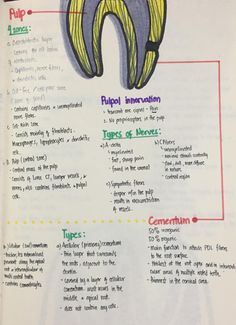 Pulp
4 zones:
a. Odontoblastic layer
- Contains the cell bodies
of odontoblasts
- Capillaries, nerve fibers,
& dendritic cells
b. Cell-free / cell-poor zone
(zone of Weil)
- Contains capillaries & unmyelinated
nerve fibers
c. Cell-rich zone
- Consists mainly of fibroblasts,
macrophages, lymphocytes & dendritic
cells
d. Pulp (central zone)
- Central mass of the pulp
- Consists of loose CT, larger vessels &
nerves, also contains fibroblasts & pulpal
cells
Pulpal innervation
- transmit one signal - Pain
- No proprioceptors in the pulp
Types of Nerves:
1) A-delta
- myelinated
- fast, sharp pain
- found in the coronal
2) C fibers
- unmyelinated
- dull, more diffuse
in nature
- central region
3) Sympathetic fibers
- deeper in the pulp
- results in vasoconstriction
of vessels
Cementum
50% inorganic
50% organic
- main function to attach PDL fibers
to the root surface
- Thickest at the root apex and in interradi-
cular areas of multiple rooted teeth.
- thinnest in the cervical area.
Types:
a) Acellular (primary) cementum
- Thin layer that surrounds
the roots, adjacent to the
dentin
- Covered by a layer of cellular
cementum most occurs in the
middle & apical root.
- does not contain any cells.
b) Cellular (secondary) cementum
- thicker, less mineralized
prevalent along the apical
root & interradicular of
multi rooted teeth
- contains cementocytes.